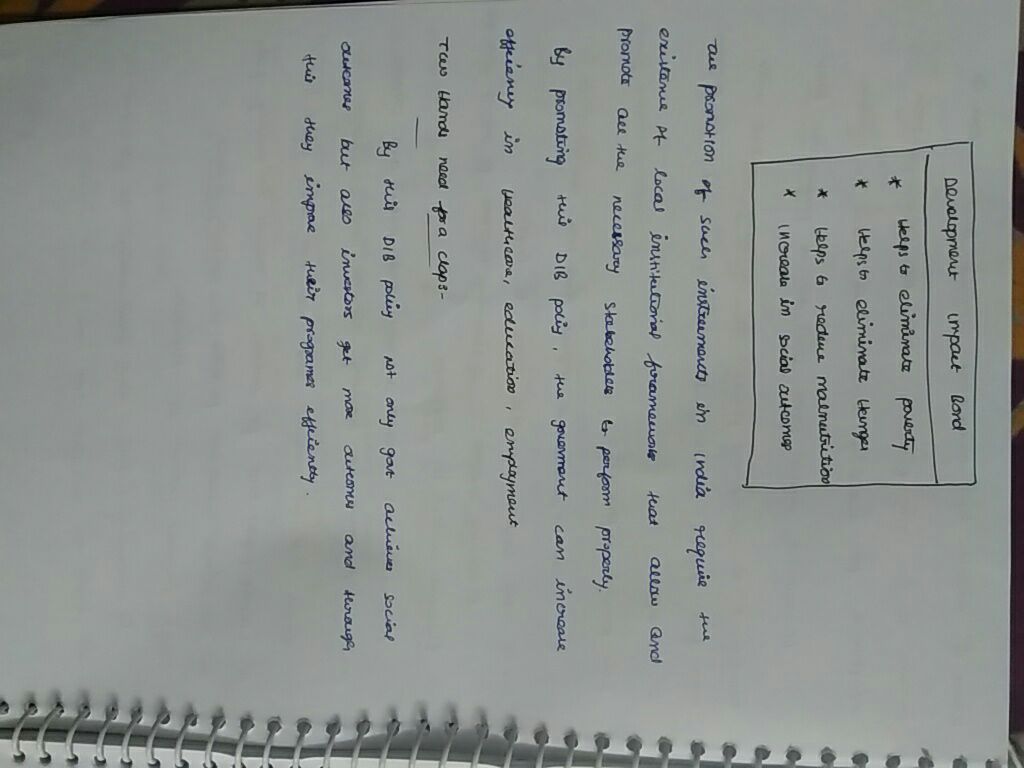 Development impact Bond
* Helps to eliminate poverty
* Helps to eliminate Hunger
* Helps to reduce malnutrition
* increase in social outcomes
The promotion of such instruments in India require the
existence of local institutional frameworks that allow and
promote all the necessary stakeholders to perform properly.
By promoting this DIB policy, the government can increase
efficiency in healthcare, education, employment
Two Hands need for a claps-
By this DIB policy not only govt achieves social
outcomes but also investors get more outcomes and through
this they improve their programes efficiently.